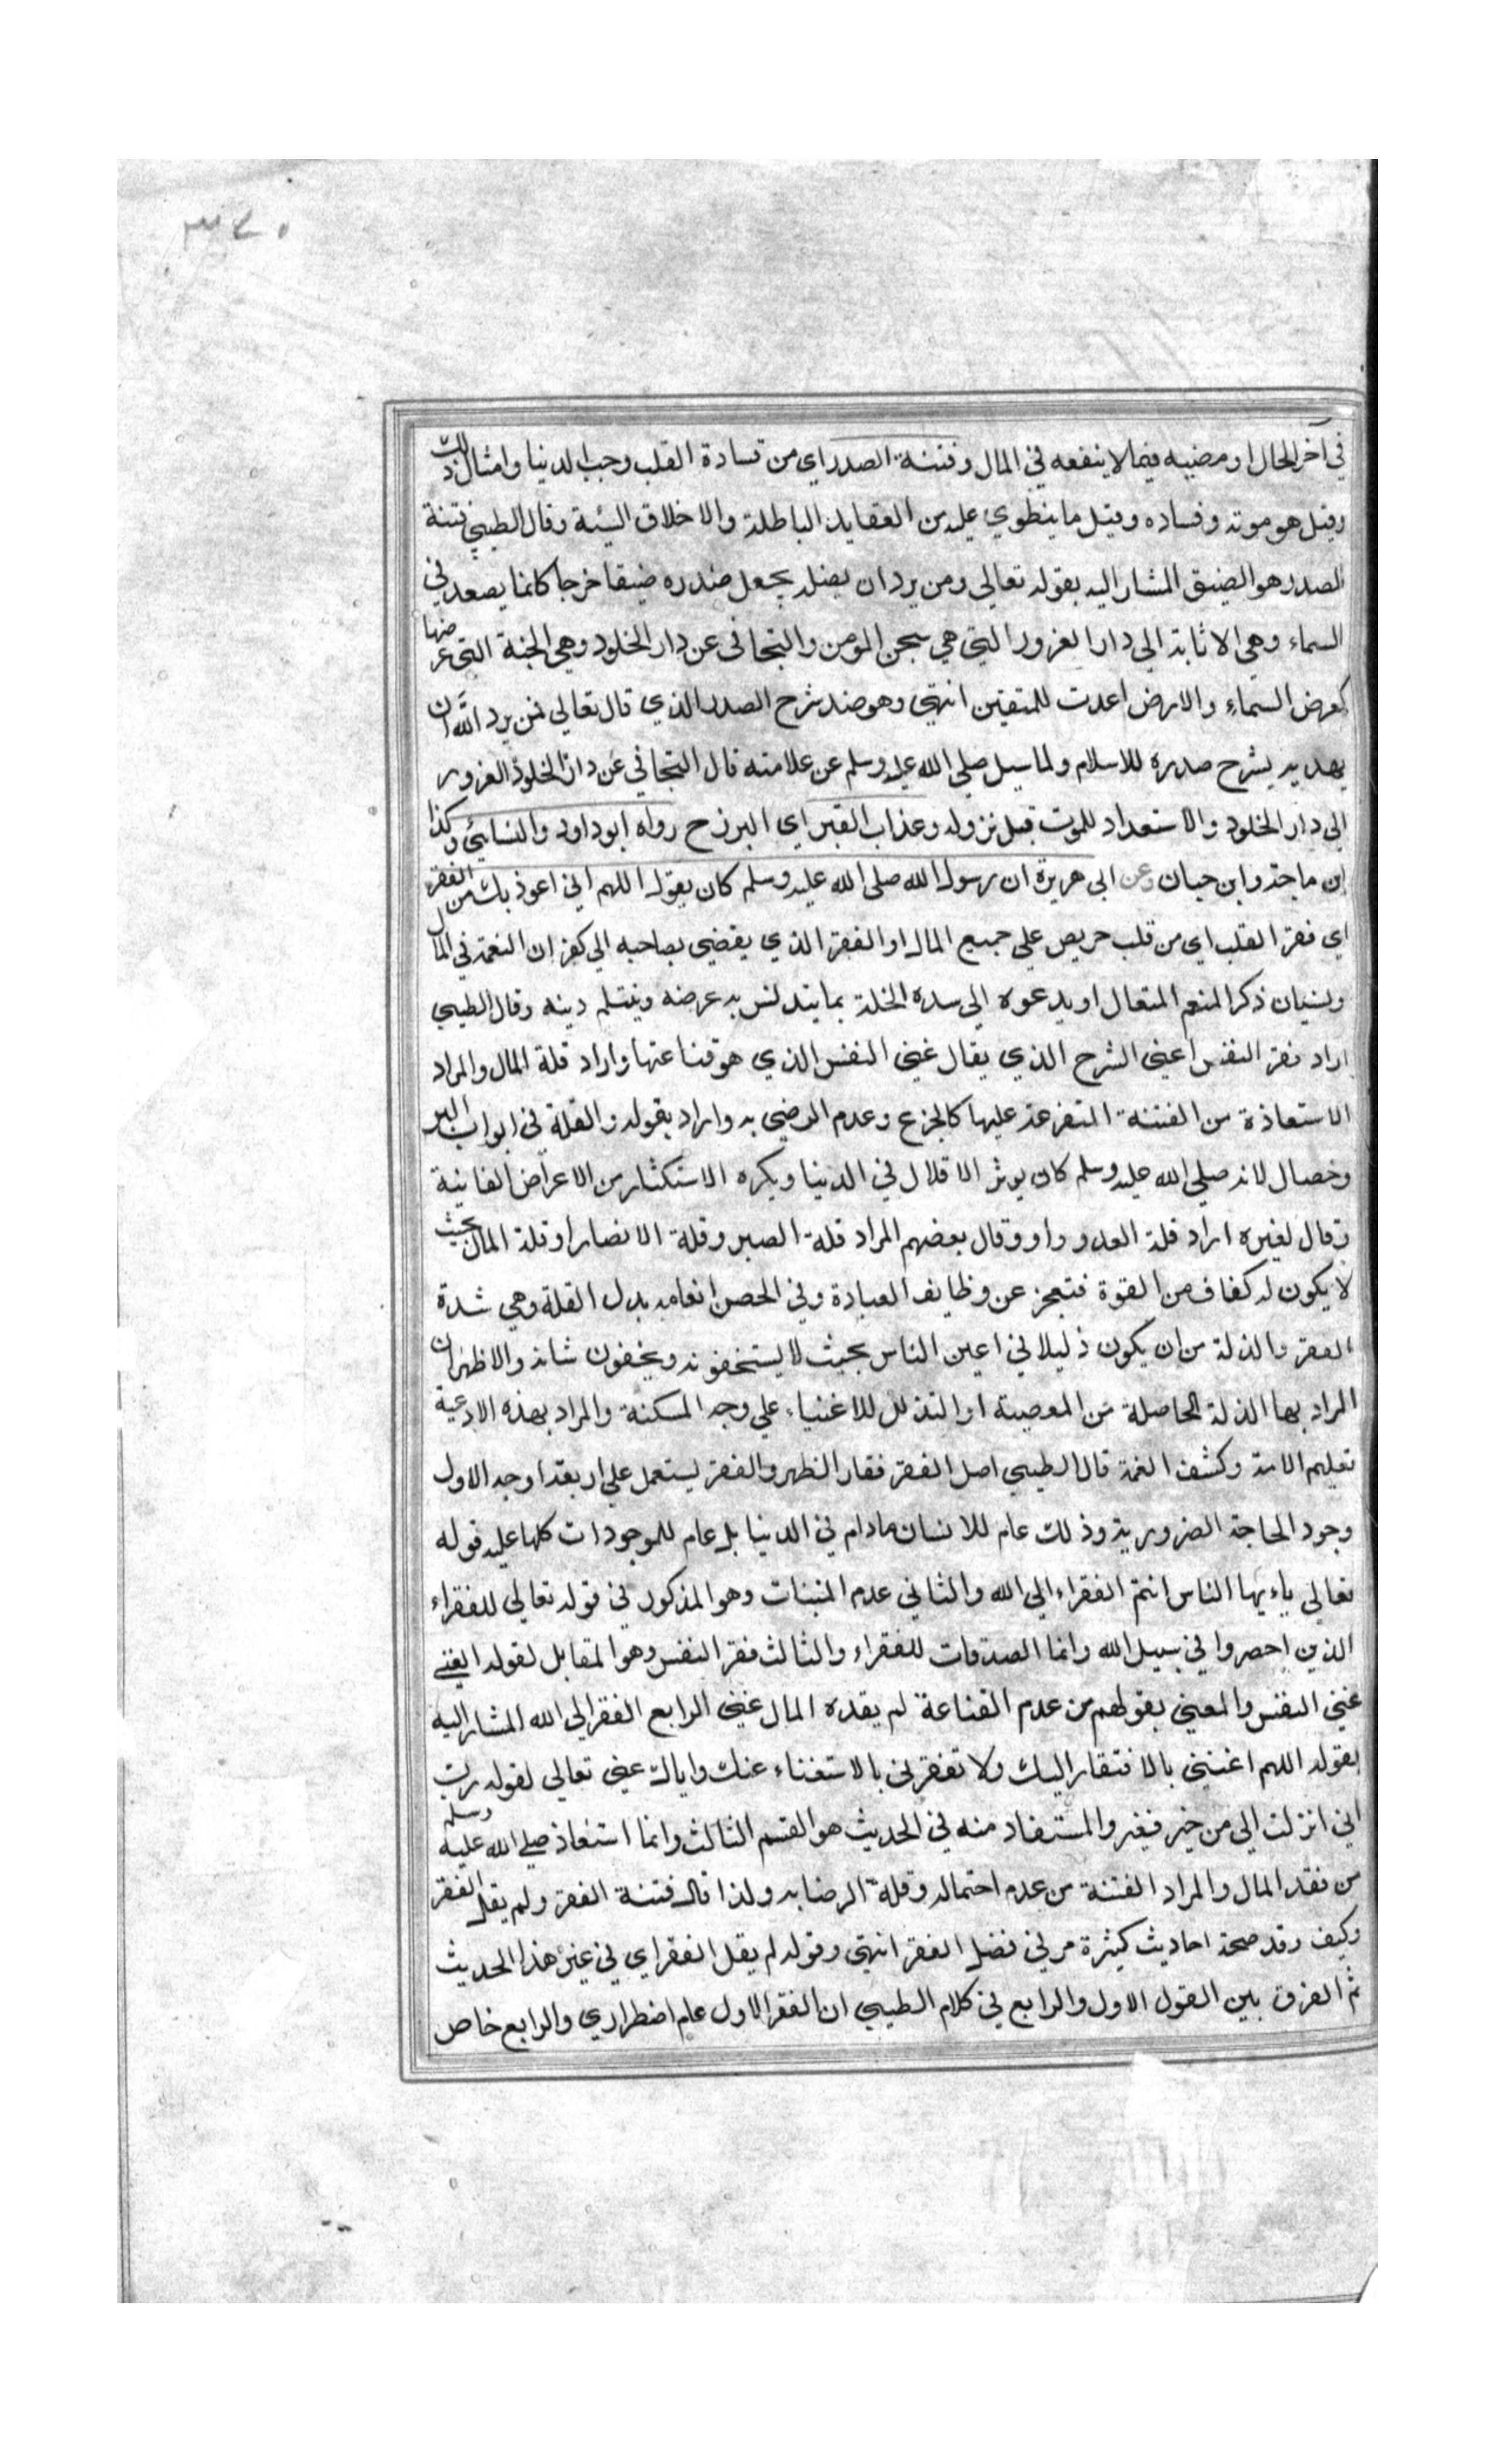 ٣٤٠
في آخر الحال او مضيه فيما لا ينفعه في المال وفتنة الصدر اي من قساوة القلب وحب الدنيا وامثال ذلك
وقيل هو موته وفساده وقيل ما ينطوي عليه من العقايد الباطلة والاخلاق السيئة وقال الطيبي فتنة
الصدر هو الضيق المشار اليه بقوله تعالي ومن يرد ان يضله يجعل صدره ضيقا حرجا كانما يصعد في
السماء وهي الانابة الي دار الغرور التي هي سجن المومن والتجافي عن دار الخلود وهي الجنة التي عرضها
كعرض السماء والارض اعدت للمتقين انتهي وهو ضد شرح الصدر الذي قال تعالي فمن يرد الله ان
يهديه يشرح صدره للاسلام ولما سيل صلي الله عليه وسلم عن علامته قال التجافي عن دار الخلود الغرور
الي دار الخلود والاستعداد للموت قبل نزوله وعذاب القبر اي البرزح رواه ابو داود والنسايئي وكذا
ابن ماجة وابن حبان وعن ابي هريرة ان رسول الله صلي الله عليه وسلم كان يقول اللهم اني اعوذ بك من الفقر
اي فقر القلب اي من قلب حريص علي جميع المال او الفقر الذي يفضي بصاحبه الي كفران النعمة في المال
ونسيان ذكر المنعم المتعال او يدعوه الي سده الخلة بما يتدنس به عرضه وينثلم دينه وقال الطيبي
اراد فقر النفس اعني الشرح الذي يقال غني النفس الذي هو قناعتها واراد قلة المال والمراد
الاستعاذة من الفتنة المتفرعة عليها كالجزع وعدم الرضي به واراد بقوله والقلة في ابواب البر
وخصال لانه صلي الله عليه وسلم كان يوثر الاقلال في الدنيا ويكره الاستكثار من الاعراض الفانية
وقال لغيره اراد قلة العدو واو وقال بعضهم المراد قلة الصبر وقلة الانصار او قلة المال بحيث
لا يكون له كفاف من القوة فتعجز عن وظايف العبادة وفي الحصن الفاقه بدل القلة وهي شدة
الفقر والذلة من ان يكون ذليلا في اعين الناس بحيث لا يستخفونه ويخفون شانه والاظهر ان
المراد بها الذلة الحاصلة من المعصية او التذلل للاغنياء علي وجه المسكنة والمراد بهذه الادعية
تعليم الامة وكشف الغمة قال الطيبي اصل الفقر فقار الظهر والفقر يستعمل علي اربعة اوجه الاول
وجود الحاجة الضرورية وذلك عام للانسان مادام في الدنيا بل عام للموجودات كلها عليه قوله
تعالي ياءيها الناس انتم الفقراء الي الله والثاني عدم المتبنات وهو المذكور في قوله تعالي للفقراء
الذين احصروا في سبيل الله وانما الصدقات للفقراء والثالث فقر النفس وهو المقابل لقوله الغني
غني النفس والمعني بقولهم من عدم القناعة لم يفده المال غني الرابع الفقر الي الله المشار اليه
بقوله اللهم اغنني بالافتقار اليك ولا تفقرني بالاستغناء عنك واياك عني تعالي لقوله رب
اني انزلت الي من خير فقير والمستفاد منه في الحديث هو القسم الثالث وانما استعاذ صلي الله عليه وسلم
من فقد المال والمراد الفتنة من عدم احتماله وقلة الرضا به ولذا قال فتنة الفقر ولم يقل الفقر
وكيف وقد صحة احاديث كثيرة مر في فضل الفقر انتهي وقوله لم يقل الفقر اي في غير هذا الحديث
ثم الفرق بين القول الاول والرابع في كلام الطيبي ان الفقر الاول عام اضطراري والرابع خاص